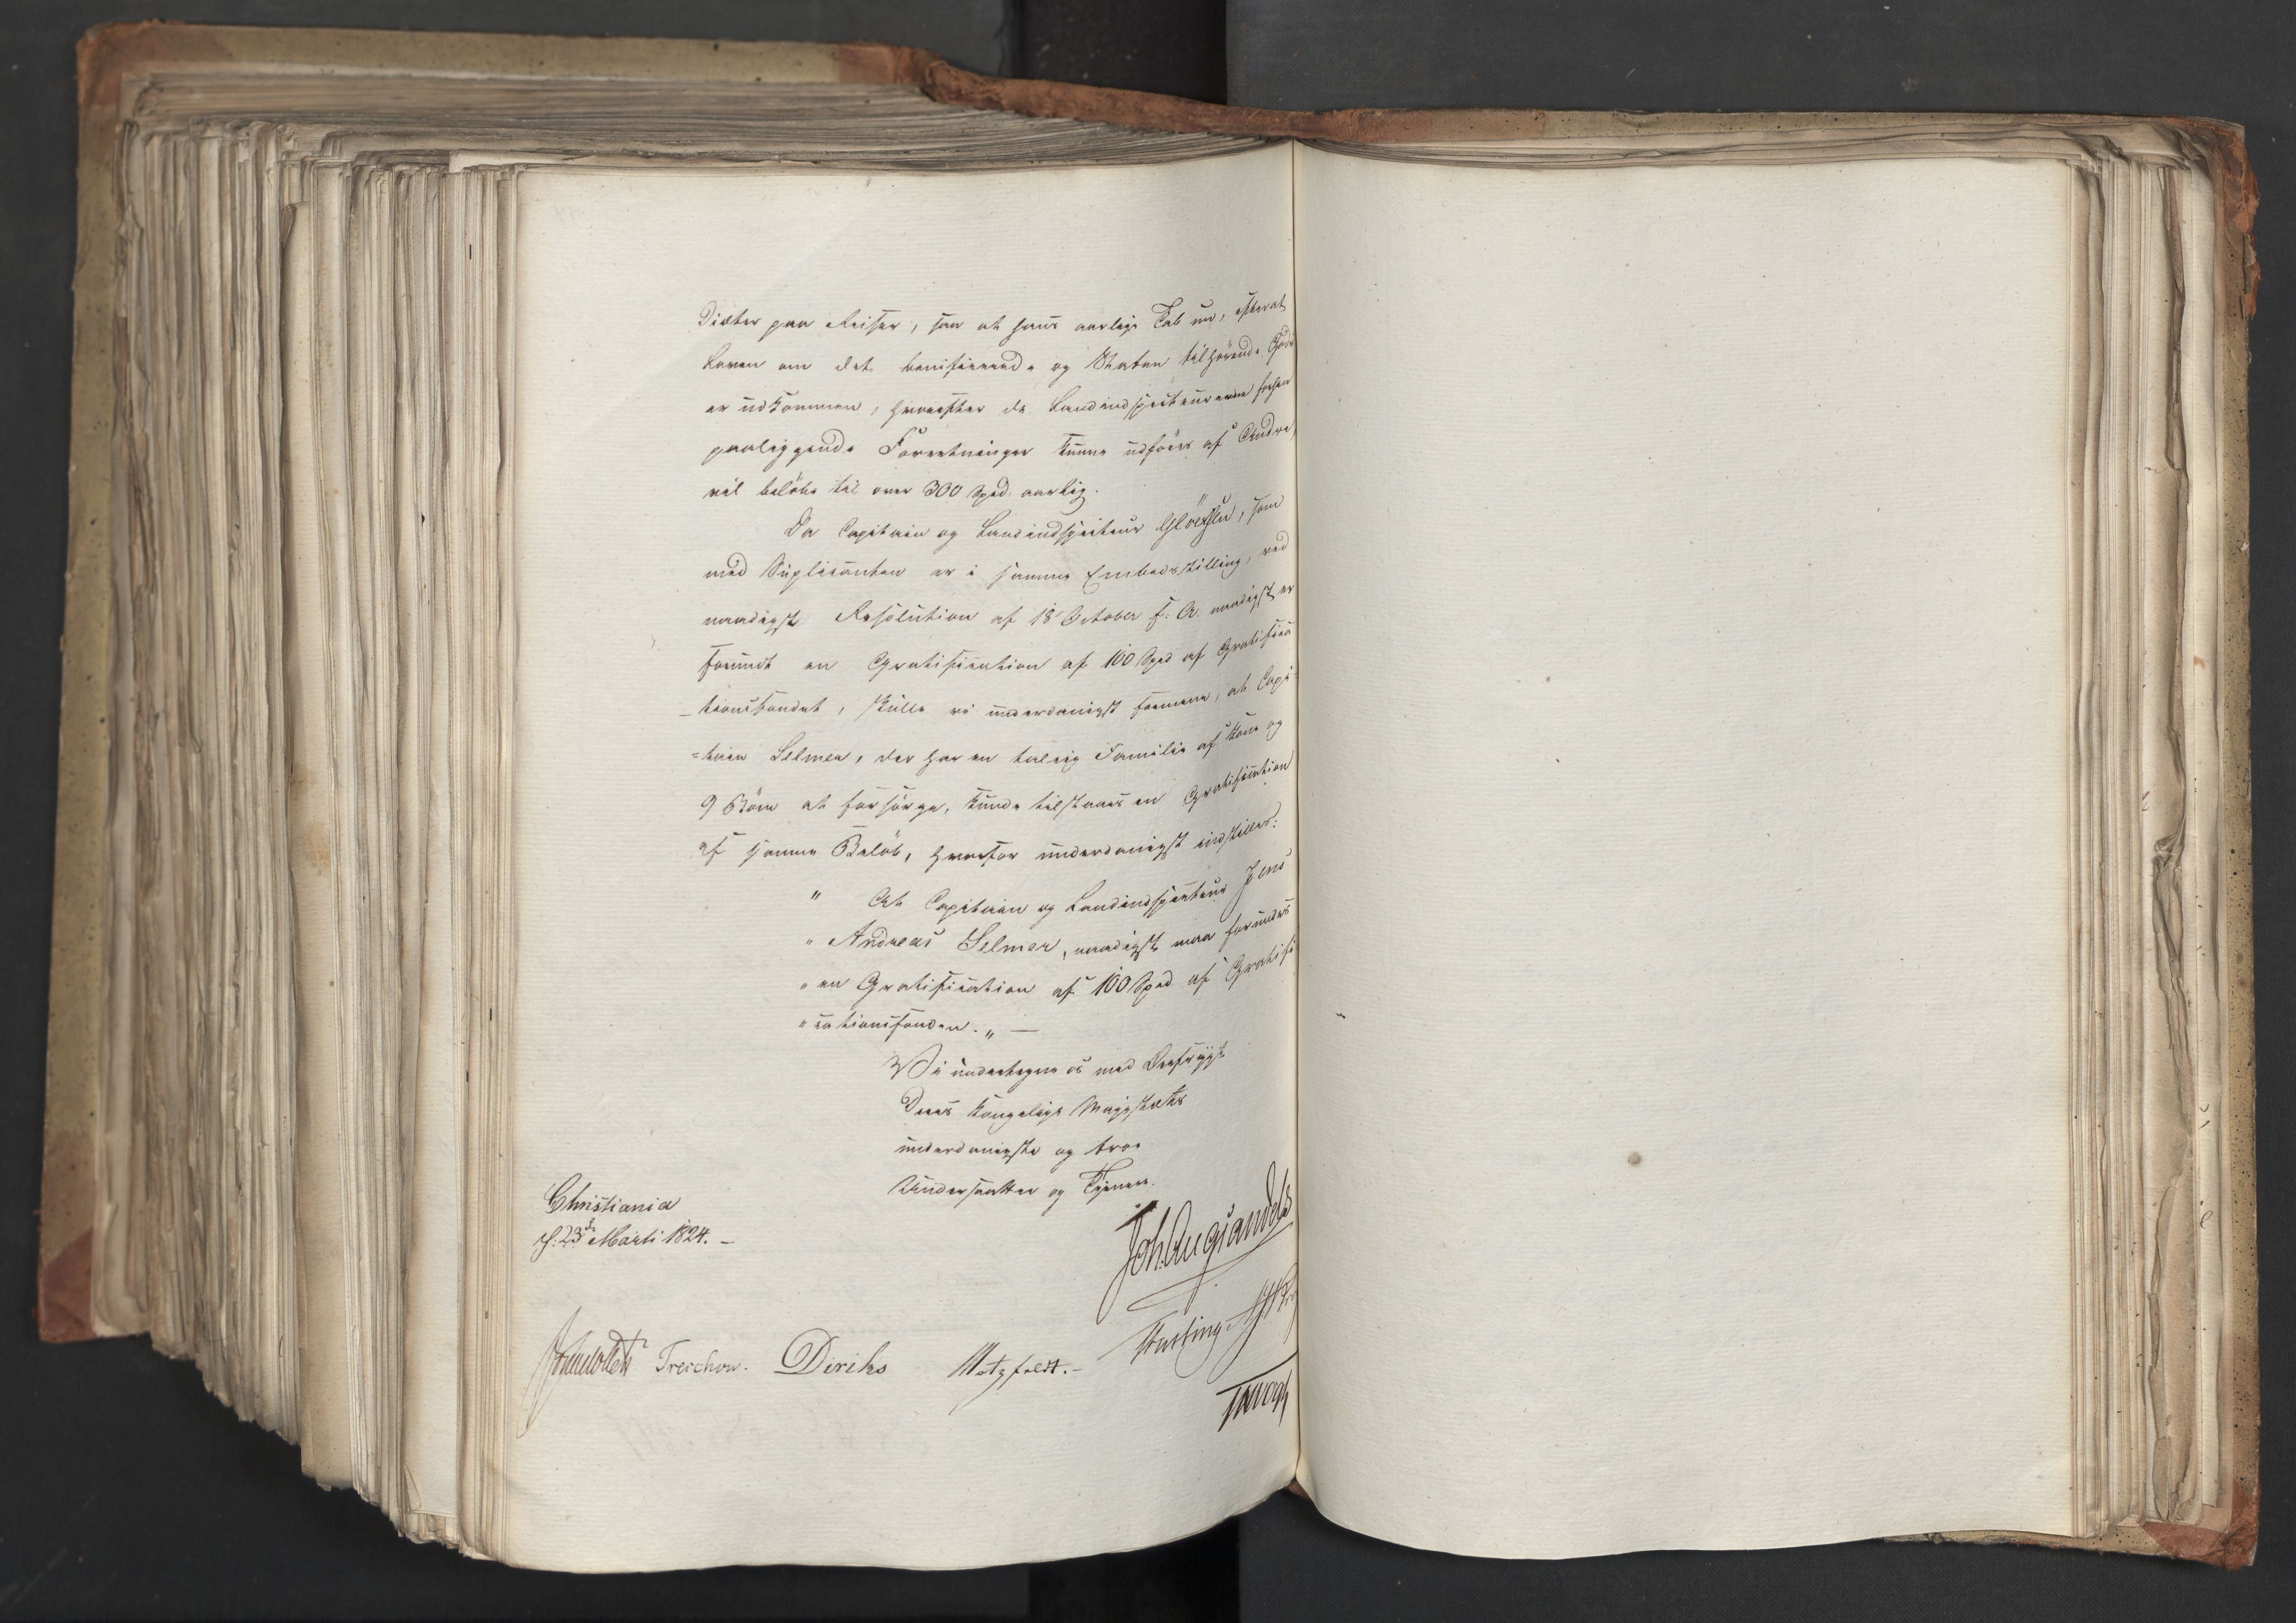 Diæter paa Reiser, saa at hans aarlige Tab nu, efterat
Loven om det beneficerede og Staten tilhørende Gods
er udkommen, hvorefter de Landinspecteurerne forhen
paaliggende Forretninger kunne udføres af Andre,
vil beløbe til over 300 Spd: aarlig.
Da Capitain og Landindspecteur Gløersen, som
med Suplicanten er i samme Embedsstilling, ved
naadigst Resolution af 18 October f: A. naadigst er
forundt en Gratification af 100 Spd af Gratifica
-tionsfondet, skulle vi underdanigst formene, at Capi=
=tain Selmer, der har en talrig Familie af Kone og
9 Børn at forsørge, kunde tilstaaes en Gratification
af samme Beløb, hvorfor underdanigst indstilles:
" At Capitain og Landindspecteur Jens
" Andreas Selmer, naadigst maa forundes
" en Gratification af 100 Spd af Gratifi
" cationsfonden. „ —
Vi undertegne os med Dybfrygt
Deres Kongelige Majestæts
underdanigste og troe
Undersaatter og Tjenere.
Christiania
d: 23de Marti 1824. –
Joh. Aug Sandels
Treschow. Diriks Motzfeldt. –
Krogh